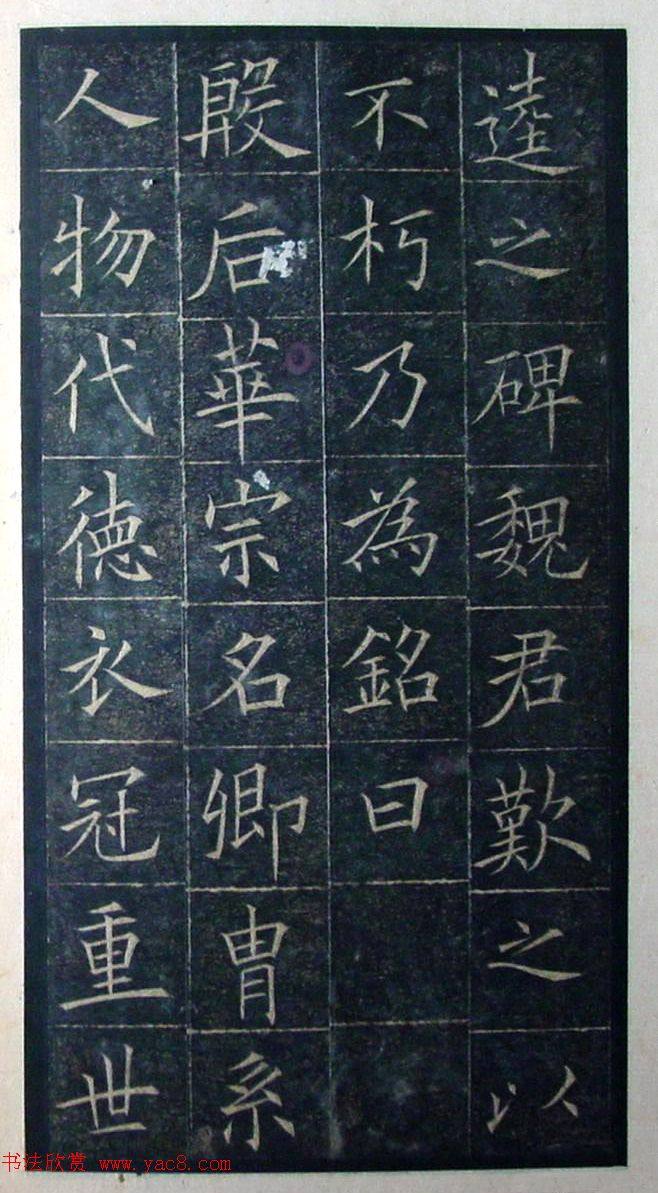 逵之碑魏君歎之以
不朽乃為銘曰
殷后華宗名卿胄系
人物代德衣冠重世
书法欣赏 www.yac8.com